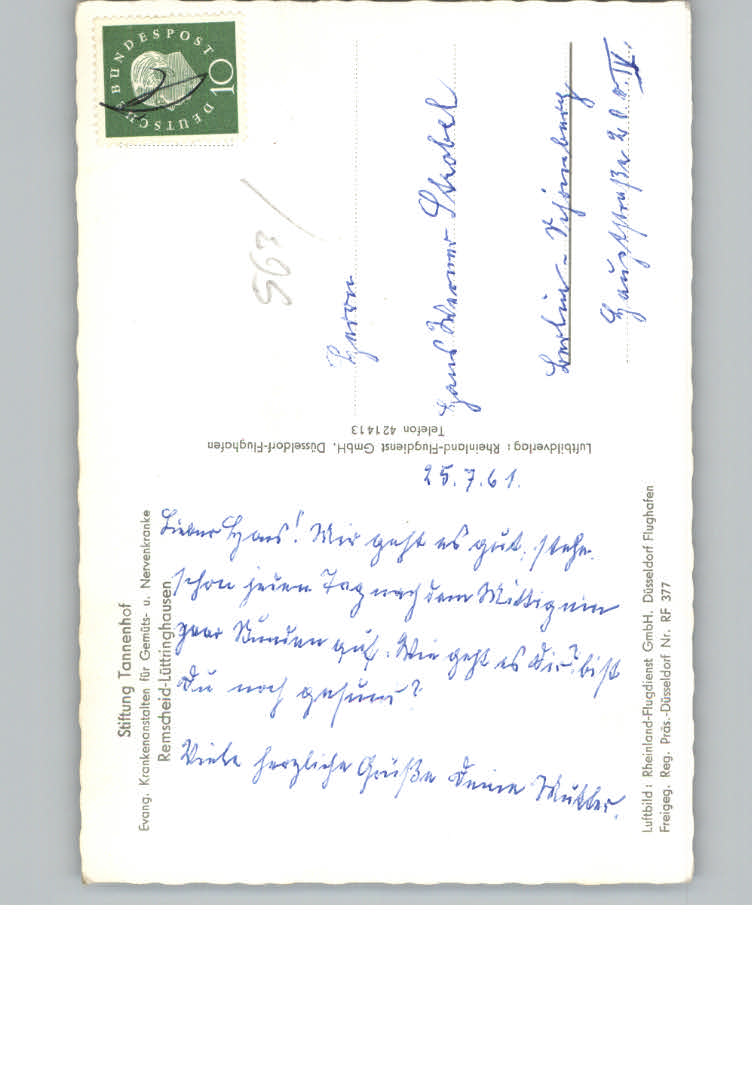 Stiftung Tannenhof
Evang. Krankenanstalten für Gemüts- u. Nervenkranke
Remscheid-Lüttringhausen
25.7.61.
Lieber Hans! Mir geht es gut, stehe
schon jeden Tag nach dem Mittag ein
paar Stunden auf. Wie geht es Dir? bist
Du noch gesund?
Viele herzliche Grüße Deine Mutter.
Luftbild: Rheinland-Flugdienst GmbH. Düsseldorf Flughafen
Freigeg. Reg. Präs.-Düsseldorf Nr. RF 377
Luftbildverlag: Rheinland-Flugdienst GmbH. Düsseldorf-Flughafen
Telefon 421413
DEUTSCHE BUNDESPOST
10
563
Herrn
Hans Werner Strobel
Berlin-Schöneberg
Hauptstraße IV